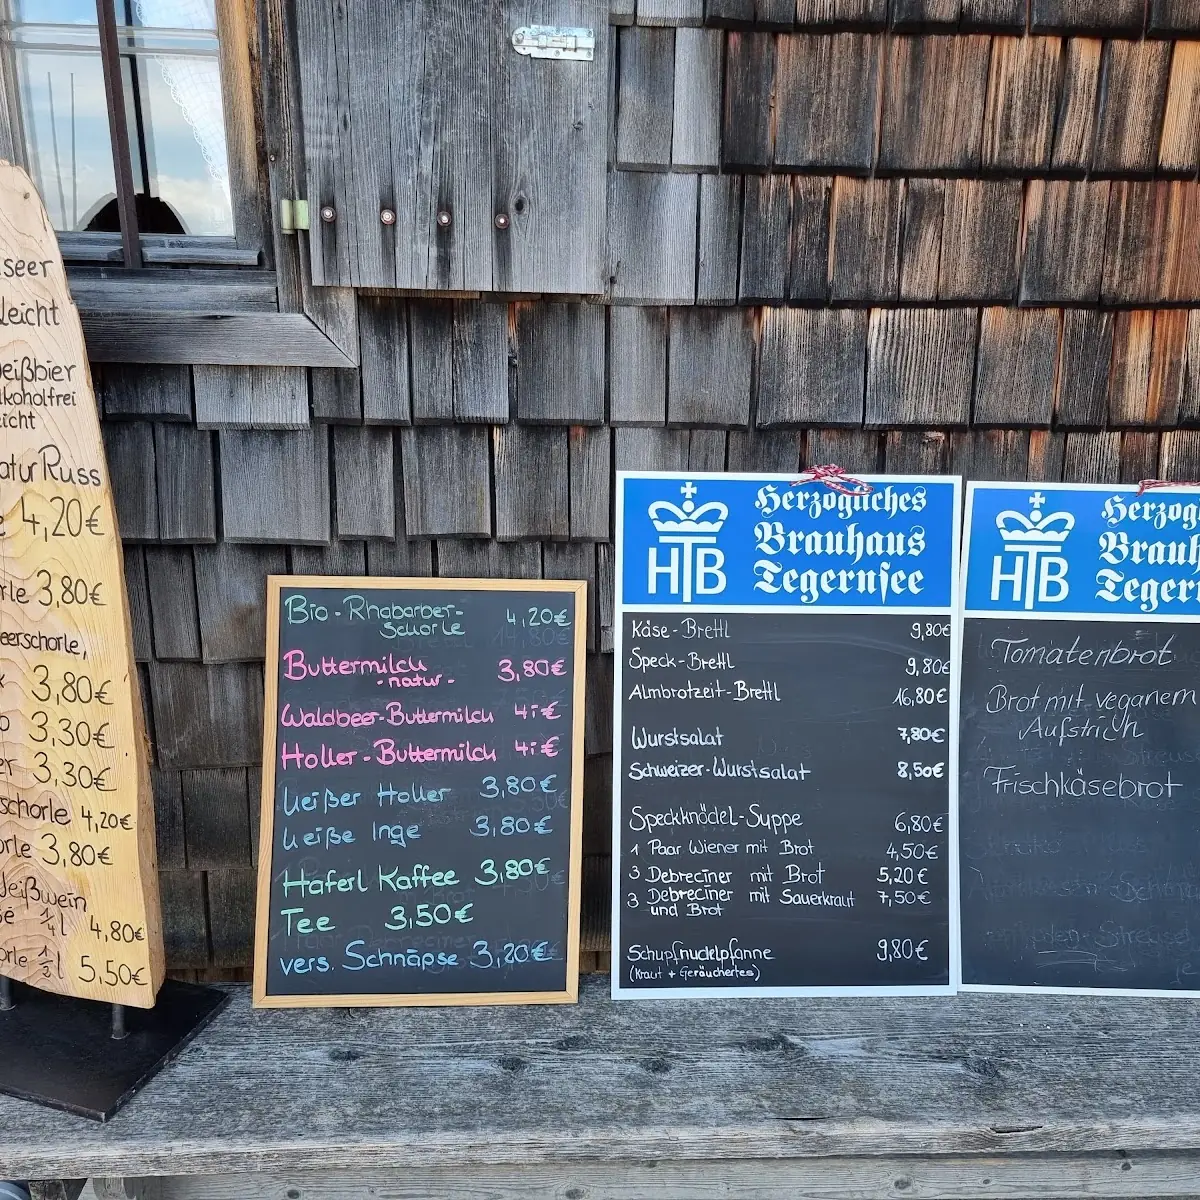 seer
leicht
eißbier
lkoholfrei
eicht
atur Russ
e 4,20€
rle 3,80€
eerschorle,
3,80€
o 3,30€
er 3,30€
schorle 4,20€
orle 3,80€
Weißwein
¼ l 4,80€
orle ½ l 5,50€
Bio-Rhabarber- 4,20€
Schorle
Buttermilch 3,80€
-natur-
Waldbeer-Buttermilch 4,-€
Holler-Buttermilch 4,-€
heißer Holler 3,80€
heiße Inge 3,80€
Haferl Kaffee 3,80€
Tee 3,50€
vers. Schnäpse 3,20€
HTB
Herzogliches
Brauhaus
Tegernsee
Käse-Brettl 9,80€
Speck-Brettl 9,80€
Almbrotzeit-Brettl 16,80€
Wurstsalat 7,80€
Schweizer-Wurstsalat 8,50€
Speckknödel-Suppe 6,80€
1 Paar Wiener mit Brot 4,50€
3 Debreciner mit Brot 5,20€
3 Debreciner mit Sauerkraut 7,50€
und Brot
Schupfnudelpfanne 9,80€
(Kraut + Geräuchertes)
HTB
Herzogl
Brauh
Tegern
Tomatenbrot
Brot mit veganem
Aufstrich
Frischkäsebrot